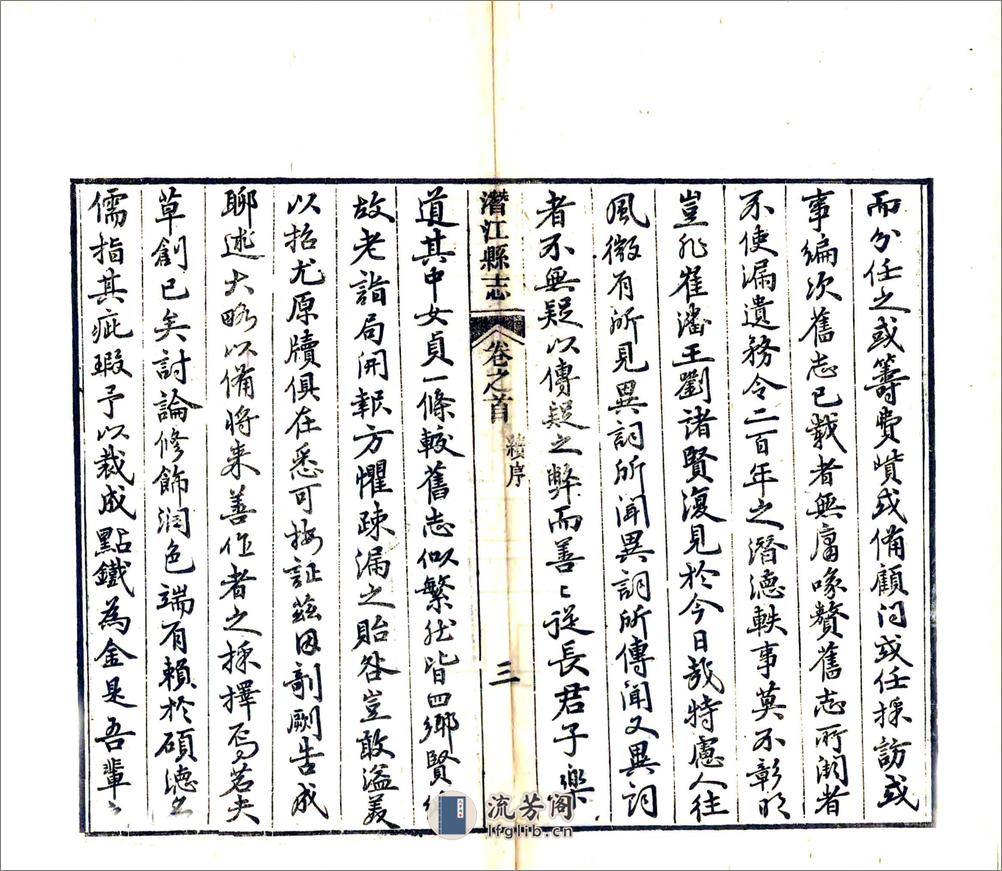 而分任之或籌費貲或備顧问或任採訪或
事编次舊志已載者無庸喙贅舊志所闕者
不使漏遺務令二百年之潛德軼事莫不彰明
豈非崔潘王劉諸賢復見於今日哉特慮人往
風微有所見異詞所聞異詞所傳聞又異詞
者不無疑以傳疑之弊而善〻從長君子樂
潛江縣志
卷之首
續序
三
道其中女貞一條較舊志似繁然皆四鄉賢
故老詣局開報方懼疎漏之貽咎豈敢溢美
以招尤原牘俱在悉可按証茲因剞劂告成
聊述大略以備将来善作者之採擇焉若夫
草創已矣討論修飾润色端有賴於碩德
儒指其疵瑕予以裁成點鐵為金是吾輩之
流芳阁
lfglib.cn